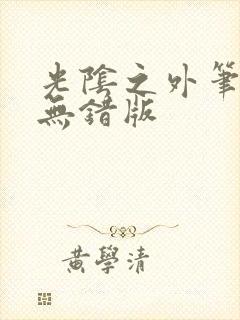 光陰之外筆
無錯版
黃學清